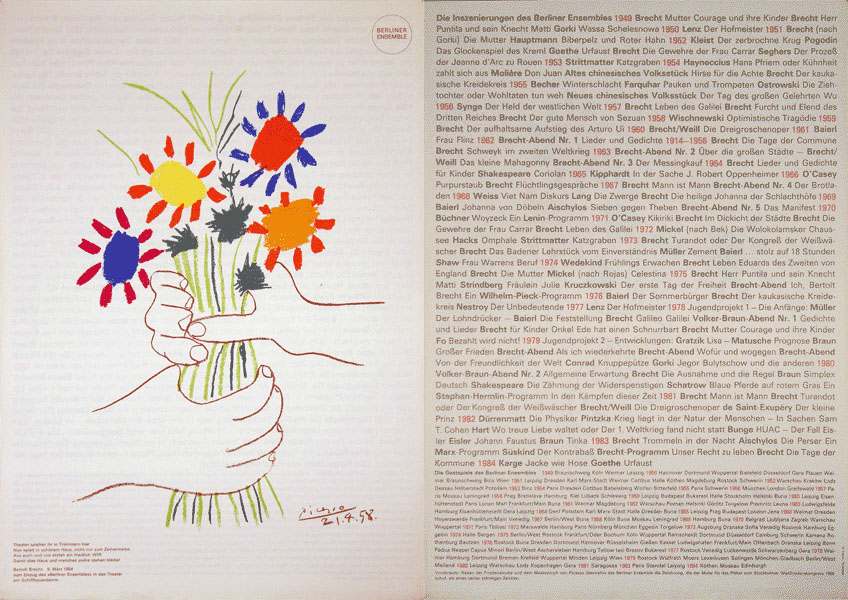 BERLINER
ENSEMBLE
Picasso
21.4.58.
Theater spieltet ihr in Trümmern hier
Nun spielt in schönem Haus, nicht nur zum Zeitvertreibe.
Aus euch und uns ersteh ein friedlich WIR
Damit dies Haus und manches andre stehen bleibe!
Bertolt Brecht 9. März 1954
zum Einzug des »Berliner Ensembles« in das Theater
am Schiffbauerdamm
Die Inszenierungen des Berliner Ensembles 1949 Brecht Mutter Courage und ihre Kinder Brecht Herr
Puntila und sein Knecht Matti Gorki Wassa Schelesnowa 1950 Lenz Der Hofmeister 1951 Brecht (nach
Gorki) Die Mutter Hauptmann Biberpelz und Roter Hahn 1952 Kleist Der zerbrochne Krug Pogodin
Das Glockenspiel des Kreml Goethe Urfaust Brecht Die Gewehre der Frau Carrar Seghers Der Prozeß
der Jeanne d'Arc zu Rouen 1953 Strittmatter Katzgraben 1954 Hayneccius Hans Pfriem oder Kühnheit
zahlt sich aus Molière Don Juan Altes chinesisches Volksstück Hirse für die Achte Brecht Der kauka-
sische Kreidekreis 1955 Becher Winterschlacht Farquhar Pauken und Trompeten Ostrowski Die Zieh-
tochter oder Wohltaten tun weh Neues chinesisches Volksstück Der Tag des großen Gelehrten Wu
1956 Synge Der Held der westlichen Welt 1957 Brecht Leben des Galilei Brecht Furcht und Elend des
Dritten Reiches Brecht Der gute Mensch von Sezuan 1958 Wischnewski Optimistische Tragödie 1959
Brecht Der aufhaltsame Aufstieg des Arturo Ui 1960 Brecht/Weill Die Dreigroschenoper 1961 Baierl
Frau Flinz 1962 Brecht-Abend Nr. 1 Lieder und Gedichte 1914–1956 Brecht Die Tage der Commune
Brecht Schweyk im zweiten Weltkrieg 1963 Brecht-Abend Nr. 2 Über die großen Städte – Brecht/
Weill Das kleine Mahagonny Brecht-Abend Nr. 3 Der Messingkauf 1964 Brecht Lieder und Gedichte
für Kinder Shakespeare Coriolan 1965 Kipphardt In der Sache J. Robert Oppenheimer 1966 O'Casey
Purpurstaub Brecht Flüchtlingsgespräche 1967 Brecht Mann ist Mann Brecht-Abend Nr. 4 Der Brotla-
den 1968 Weiss Viet Nam Diskurs Lang Die Zwerge Brecht Die heilige Johanna der Schlachthöfe 1969
Baierl Johanna von Döbeln Aischylos Sieben gegen Theben Brecht-Abend Nr. 5 Das Manifest 1970
Büchner Woyzeck Ein Lenin-Programm 1971 O'Casey Kikiriki Brecht Im Dickicht der Städte Brecht Die
Gewehre der Frau Carrar Brecht Leben des Galilei 1972 Mickel (nach Bek) Die Wolokolamsker Chaus-
see Hacks Omphale Strittmatter Katzgraben 1973 Brecht Turandot oder Der Kongreß der Weißwä-
scher Brecht Das Badener Lehrstück vom Einverständnis Müller Zement Baierl ... stolz auf 18 Stunden
Shaw Frau Warrens Beruf 1974 Wedekind Frühlings Erwachen Brecht Leben Eduards des Zweiten von
England Brecht Die Mutter Mickel (nach Rojas) Celestina 1975 Brecht Herr Puntila und sein Knecht
Matti Strindberg Fräulein Julie Kruczkowski Der erste Tag der Freiheit Brecht Ich, Bertolt
Brecht Ein Wilhelm-Pieck-Programm 1976 Baierl Der Sommerbürger Brecht Der kaukasische Kreide-
kreis Nestroy Der Unbedeutende 1977 Lenz Der Hofmeister 1978 Jugendprojekt 1 – Die Anfänge: Müller
Der Lohndrücker – Baierl Die Feststellung Brecht Galileo Galilei Volker-Braun-Abend Nr. 1 Gedichte
und Lieder Brecht für Kinder Onkel Ede hat einen Schnurrbart Brecht Mutter Courage und ihre Kinder
Fo Bezahlt wird nicht! 1979 Jugendprojekt 2 – Entwicklungen: Gratzik Lisa – Matusche Prognose Braun
Großer Frieden Brecht-Abend Als ich wiederkehrte Brecht-Abend Wofür und wogegen Brecht-Abend
Von der Freundlichkeit der Welt Conrad Knuppepütze Gorki Jegor Bulytschow und die anderen 1980
Volker-Braun-Abend Nr. 2 Allgemeine Erwartung Brecht Die Ausnahme und die Regel Braun Simplex
Deutsch Shakespeare Die Zähmung der Widerspenstigen Schatrow Blaue Pferde auf rotem Gras Ein
Stephan-Hermlin-Programm In den Kämpfen dieser Zeit 1981 Brecht Mann ist Mann Brecht Turandot
oder Der Kongreß der Weißwäscher Brecht/Weill Die Dreigroschenoper de Saint-Exupéry Der kleine
Prinz 1982 Dürrenmatt Die Physiker Pintzka Krieg liegt in der Natur der Menschen – In Sachen Sam
T. Cohen Hart Wo treue Liebe waltet oder Der 1. Weltkrieg fand nicht statt Bunge HUAC – Der Fall Eis-
ler Eisler Johann Faustus Braun Tinka 1983 Brecht Trommeln in der Nacht Aischylos Die Perser Ein
Marx-Programm Süskind Der Kontrabaß Brecht-Programm Unser Recht zu leben Brecht Die Tage der
Kommune 1984 Karge Jacke wie Hose Goethe Urfaust
Die Gastspiele des Berliner Ensembles